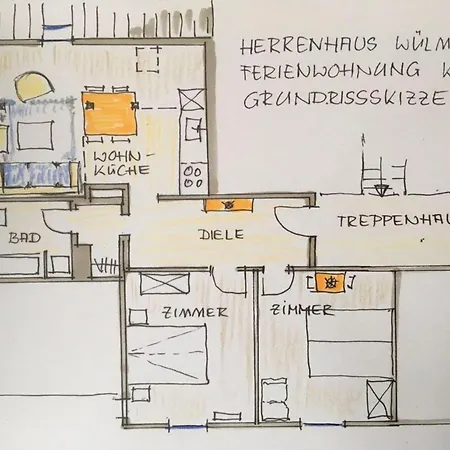 HERRENHAUS WÜLM
FERIENWOHNUNG K
GRUNDRISSSKIZZE
WOHN-
KÜCHE
BAD
DIELE
TREPPENHAU
ZIMMER
ZIMMER